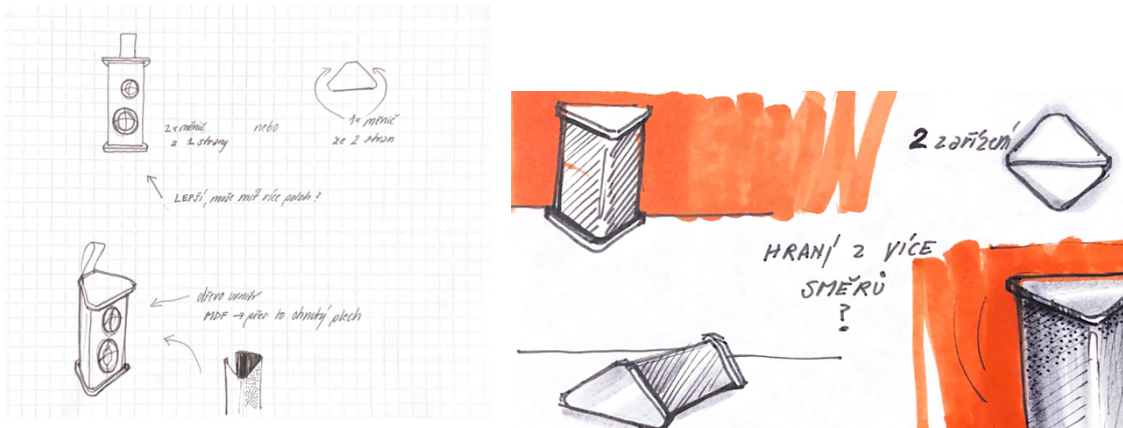 2x měnič
z 1 strany
nebo
1x měnič
ze 2 stran
LEPŠÍ, může mít více poloh?
dřevo uvnitř
MDF → přes to ohnutý plech
2 zařízení
HRANÍ Z VÍCE
SMĚRŮ
?